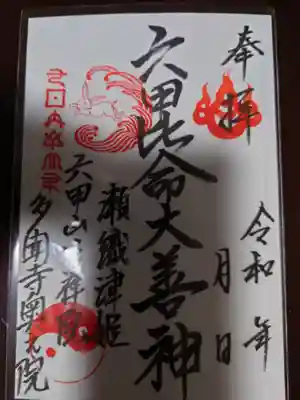 奉拝
令和 年
月 日
六甲比命大善神
瀬織津姫
六甲山吉祥院
多聞寺奥之院